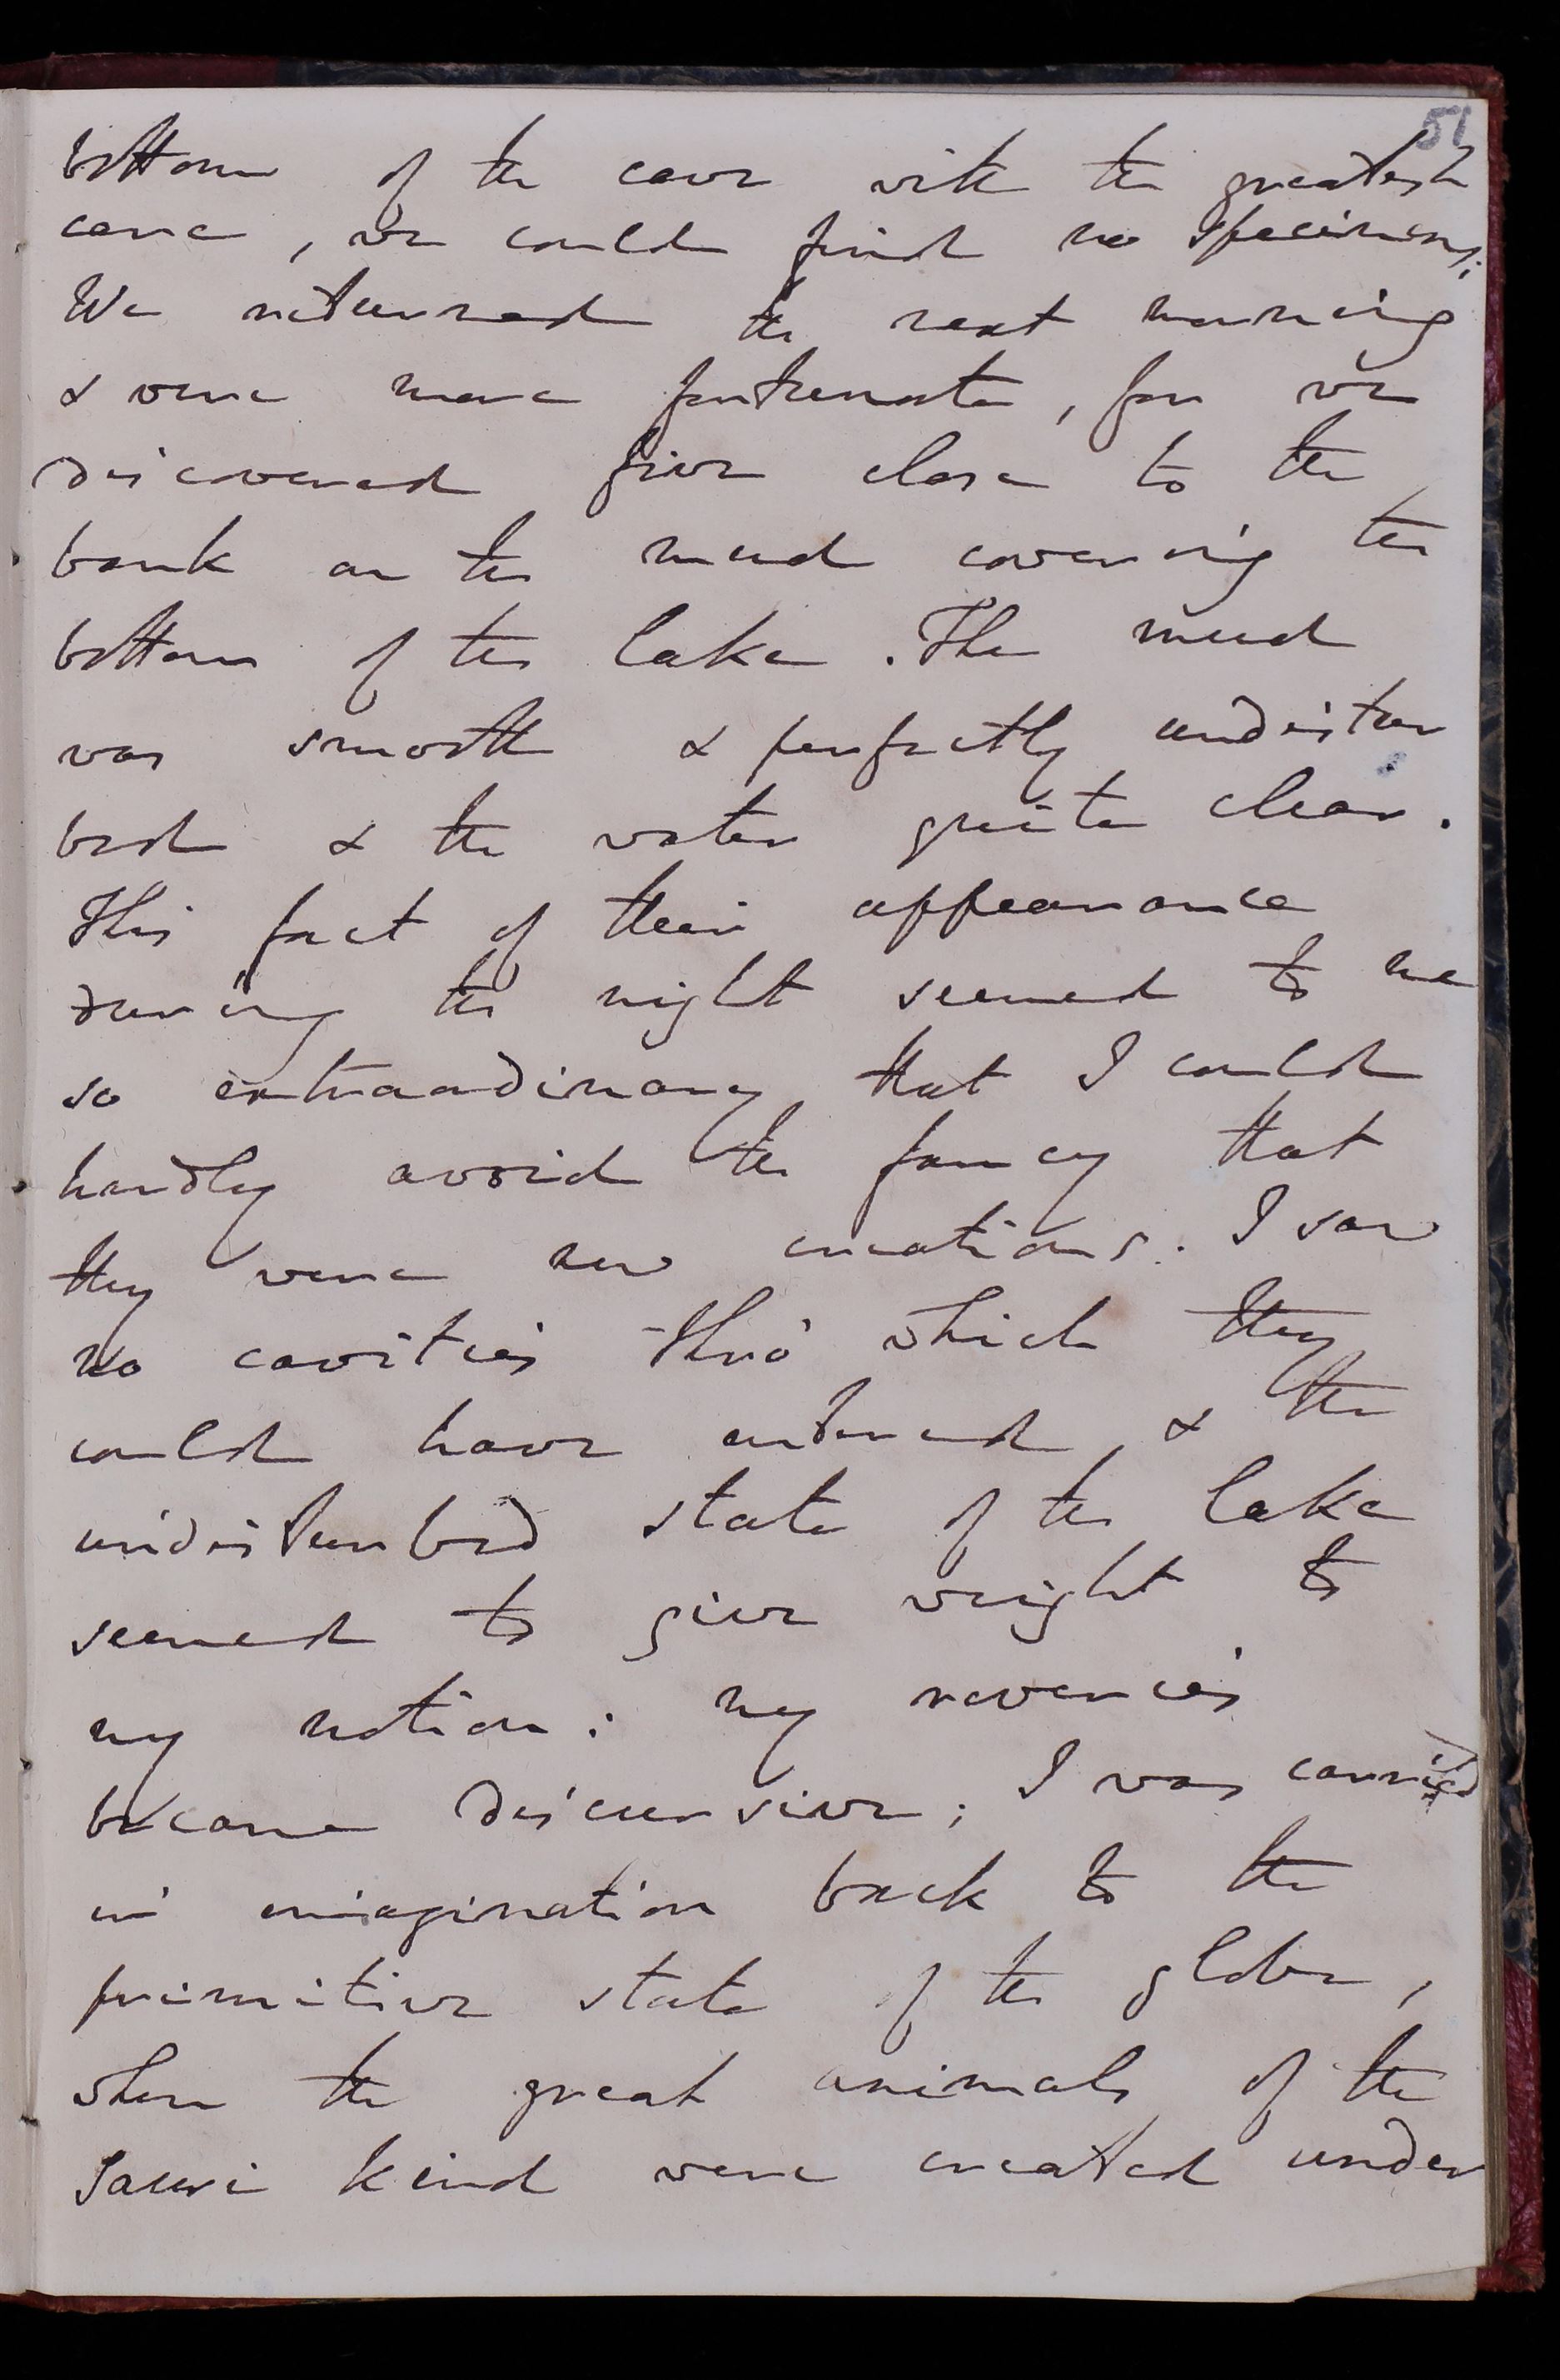 51
bottom of the cave with the greatest
care, we could find no specimens;
We returned the next morning
& were more fortunate, for we
discovered five close to the
bank on the mud covering the
bottom of the lake. The mud
was smooth & perfectly undistur
bed & the water quite clear.
This fact of their appearance
during the night seemed to me
so extraordinary that I could
hardly avoid the fancy that
they were new creations. I saw
no cavities thro' which they
could have entered, & the
undisturbed state of the lake
seemed to give weight to
my notion: my reveries
became discursive; I was carried
in imagination back to the
primitive state of the globe,
when the great animals of the
Sauri kind were created under